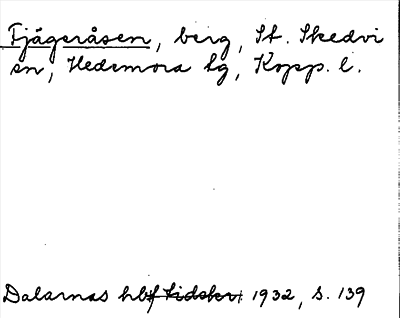 Fjågeråsen, berg, St. Skedvi
sn, Hedemora lg, Kopp. l.
Dalarnas hbf Tidskr 1932, s. 139